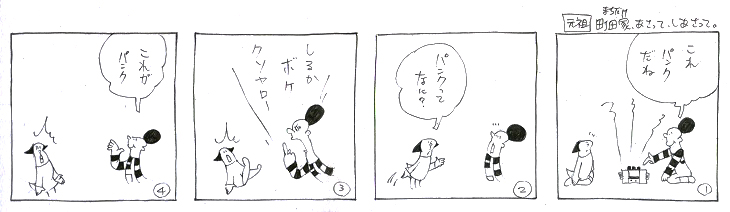 元祖 町田家、あさって、しあさって。
まちだけ
これ
パンク
だね
①
パンクって
なに?
②
しるか
ボケ
クソヤロー
③
これが
パンク
④